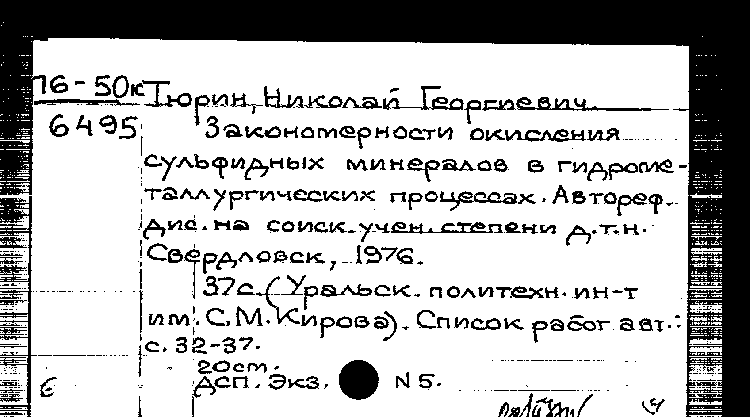 76-50к Тюрин, Николай Георгиевич.
6495 Закономерности окисления
сульфидных минералов в гидроме-
таллургических процессах. Автореф.
дис. на соиск. учен. степени д.т.н.
Свердловск, 1976.
37с. (Уральск. политехн. ин-т
им. С.М. Кирова). Список работ авт.:
с. 32-37.
20cm.
ДСП. Экз. N 5.